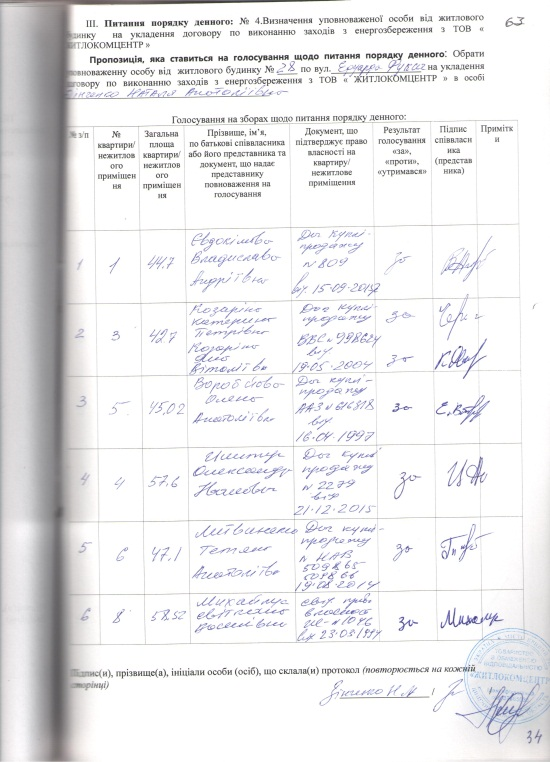 63
III. Питання порядку денному: № 4.Визначення уповноваженої особи від житлового
будинку на укладення договору по виконанню заходів з енергозбереження з ТОВ «
ЖИТЛОКОМЦЕНТР »
Пропозиція, яка ставиться на голосування щодо питання порядку денного: Обрати
уповноваженну особу від житлового будинку № 28 по вул. Едуарда Фукса на укладення
договору по виконанню заходів з енергозбереження з ТОВ « ЖИТЛОКОМЦЕНТР » в особі
Зінченко Наталя Анатоліївна
Голосування на зборах щодо питання порядку денного:
№ з/п
№ квартири/ нежитлового приміщення
Загальна площа квартири/ нежитлового приміщення
Прізвище, ім’я, по батькові співвласника або його представника та документ, що надає представнику повноваження на голосування
Документ, що підтверджує право власності на квартиру/ нежитлове приміщення
Результат голосування «за», «проти», «утримався»
Підпис співвласника (представника)
Примітки
1 1 44.7 Євдокімова Владислава Андріївна Дог купі-продажу № 809 від 15-09-2015р за
2 3 42.7 Козаріна Катерина Петрівна Дог купілі-продажу ВВС № 998624 від 19-05-2004 за
Козаріна Вітоліївна за
3 5 45,02 Воробйова Олена Анатоліївна Дог купілі-продажу ААЗ № 616318 від 16-04-1997 за
4 4 57.6 Олександр Дог купілі продажу № 2279 від 21-12-2015 за
5 6 47.1 Литвиненко Тетяна Анатоліївна Дог купілі-продажу № НАВ 509865 507866 19-08-2014 за
6 8 58.52 Михайлик Світлана Василівна свід право власності від 23-03-1994 за
Підпис(и), прізвище(а), ініціали особи (осіб), що склала(и) протокол (повторюється на кожній
сторінці)
Зінченко Н.А
«ЖИТЛОКОМЦЕНТР»
34